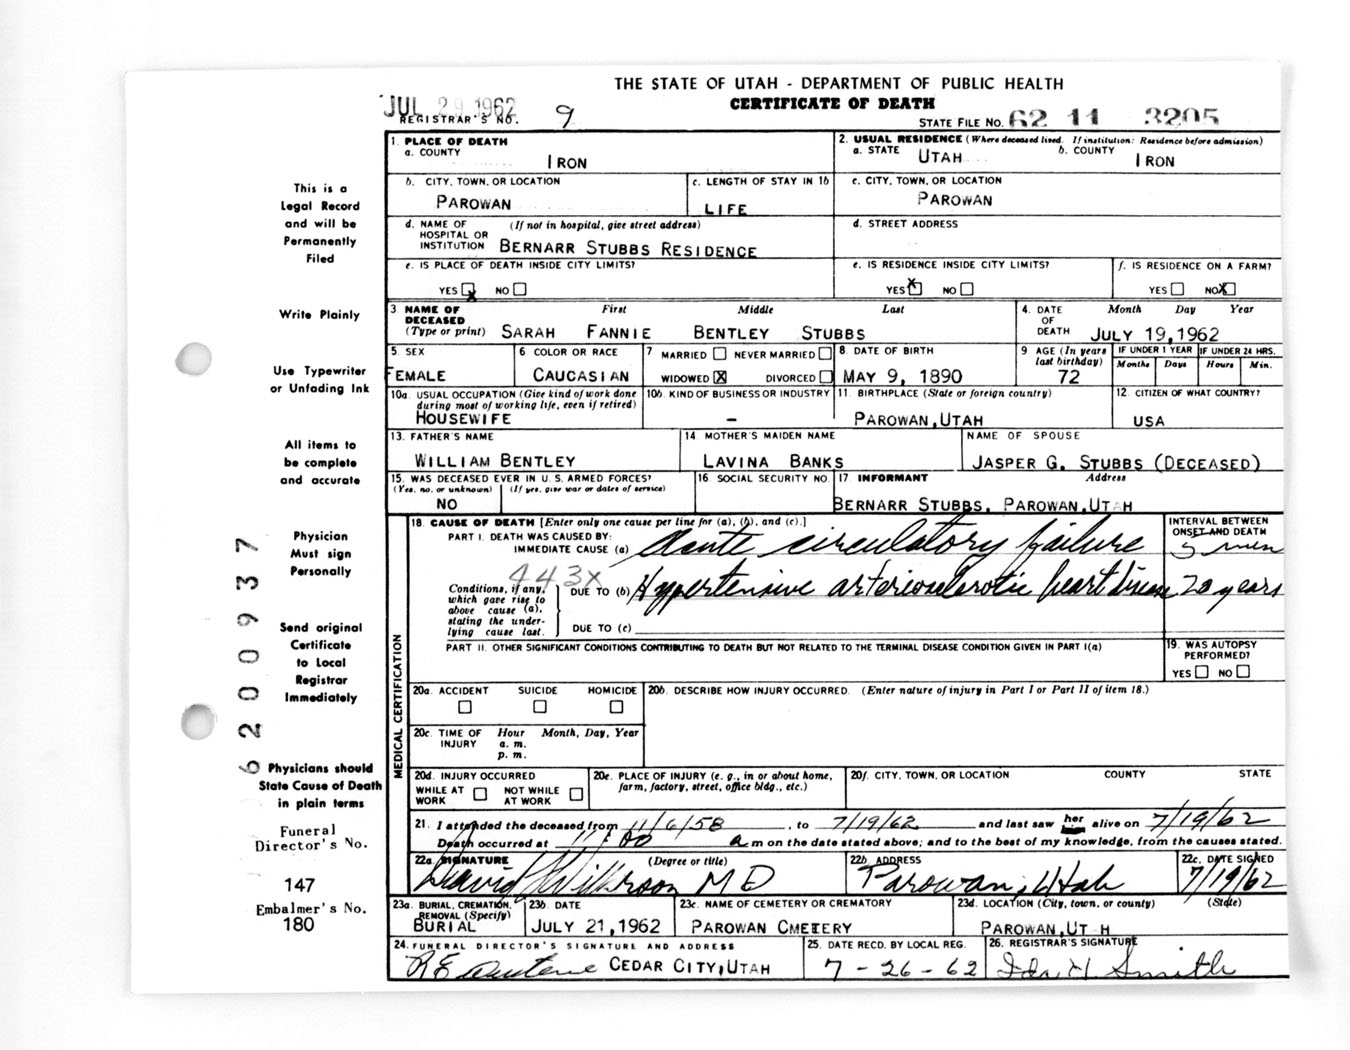 THE STATE OF UTAH - DEPARTMENT OF PUBLIC HEALTH
CERTIFICATE OF DEATH
JUL 29 1962
REGISTRAR'S NO. 9
STATE FILE NO. 62 11 3205
1. PLACE OF DEATH
a. COUNTY
IRON
2. USUAL RESIDENCE (Where deceased lived. If institution: Residence before admission)
a. STATE UTAH b. COUNTY IRON
b. CITY, TOWN, OR LOCATION
PAROWAN
c. LENGTH OF STAY IN 1b
LIFE
c. CITY, TOWN, OR LOCATION
PAROWAN
d. NAME OF HOSPITAL OR INSTITUTION (If not in hospital, give street address)
BERNARR STUBBS RESIDENCE
d. STREET ADDRESS
e. IS PLACE OF DEATH INSIDE CITY LIMITS?
YES X NO
e. IS RESIDENCE INSIDE CITY LIMITS?
YES X NO
f. IS RESIDENCE ON A FARM?
YES NO X
3. NAME OF DECEASED (Type or print)
First Middle Last
SARAH FANNIE BENTLEY STUBBS
4. DATE OF DEATH
Month Day Year
JULY 19,1962
5. SEX
FEMALE
6 COLOR OR RACE
CAUCASIAN
7 MARRIED NEVER MARRIED
WIDOWED X DIVORCED
8. DATE OF BIRTH
MAY 9, 1890
9 AGE (In years last birthday)
72
IF UNDER 1 YEAR IF UNDER 24 HRS.
Months Days Hours Min.
10a. USUAL OCCUPATION (Give kind of work done during most of working life, even if retired)
HOUSEWIFE
10b. KIND OF BUSINESS OR INDUSTRY
-
11. BIRTHPLACE (State or foreign country)
PAROWAN,UTAH
12. CITIZEN OF WHAT COUNTRY?
USA
13. FATHER'S NAME
WILLIAM BENTLEY
14 MOTHER'S MAIDEN NAME
LAVINA BANKS
NAME OF SPOUSE
JASPER G. STUBBS (DECEASED)
15. WAS DECEASED EVER IN U.S. ARMED FORCES?
(Yes, no, or unknown) (If yes, give war or dates of service)
NO
16. SOCIAL SECURITY NO.
17. INFORMANT Address
BERNARR STUBBS, PAROWAN,UTAH
MEDICAL CERTIFICATION
18. CAUSE OF DEATH [Enter only one cause per line for (a), (b), and (c).]
PART I. DEATH WAS CAUSED BY:
IMMEDIATE CAUSE (a) Acute circulatory failure
INTERVAL BETWEEN ONSET AND DEATH
5 min
443X
Conditions, if any, which gave rise to above cause (a), stating the underlying cause last.
DUE TO (b) Hypertensive arteriosclerotic heart disease 20 years
DUE TO (c)
PART II. OTHER SIGNIFICANT CONDITIONS CONTRIBUTING TO DEATH BUT NOT RELATED TO THE TERMINAL DISEASE CONDITION GIVEN IN PART I(a)
19. WAS AUTOPSY PERFORMED?
YES NO
20a. ACCIDENT SUICIDE HOMICIDE
20b. DESCRIBE HOW INJURY OCCURRED. (Enter nature of injury in Part I or Part II of item 18.)
20c. TIME OF INJURY
Hour Month, Day, Year
a. m.
p. m.
20d. INJURY OCCURRED
WHILE AT WORK NOT WHILE AT WORK
20e. PLACE OF INJURY (e. g., in or about home, farm, factory, street, office bldg., etc.)
20f. CITY, TOWN, OR LOCATION COUNTY STATE
21. I attended the deceased from 11/6/58, to 7/19/62 and last saw her alive on 7/19/62
Death occurred at 11:00 a m on the date stated above; and to the best of my knowledge, from the causes stated.
22a. SIGNATURE (Degree or title)
David Wilkinson MD
22b. ADDRESS
Parowan, Utah
22c. DATE SIGNED
7/19/62
23a. BURIAL, CREMATION, REMOVAL (Specify)
BURIAL
23b. DATE
JULY 21,1962
23c. NAME OF CEMETERY OR CREMATORY
PAROWAN CMETERY
23d. LOCATION (City, town, or county) (State)
PAROWAN,UT H
24. FUNERAL DIRECTOR'S SIGNATURE AND ADDRESS
CEDAR CITY,UTAH
25. DATE RECD. BY LOCAL REG.
7-26-62
26. REGISTRAR'S SIGNATURE
Ida H Smith
This is a
Legal Record
and will be
Permanently
Filed
Write Plainly
Use Typewriter
or Unfading Ink
All items to
be complete
and accurate
Physician
Must sign
Personally
Send original
Certificate
to Local
Registrar
Immediately
Physicians should
State Cause of Death
in plain terms
Funeral
Director's No.
147
Embalmer's No.
180
6200937